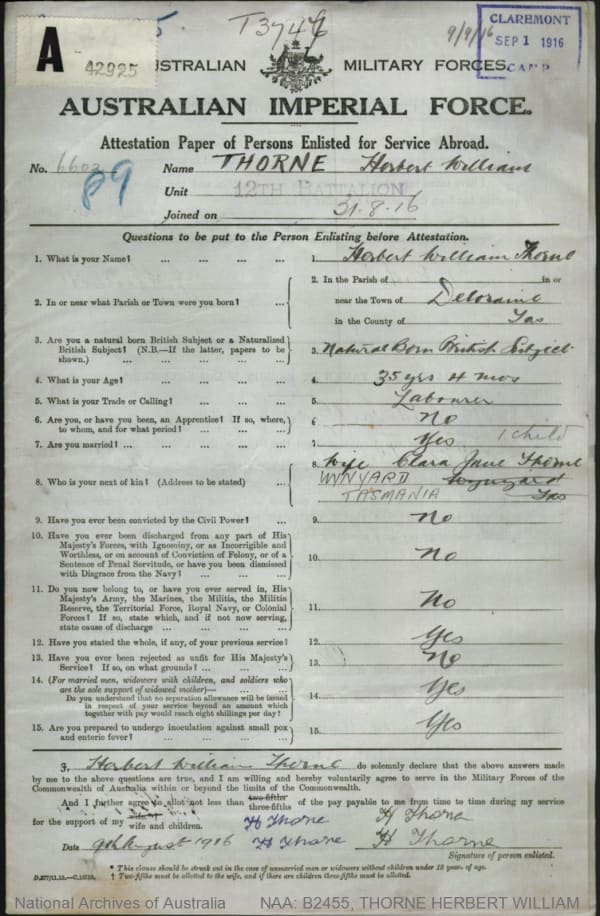 A
42925
T3746
9/9/16
CLAREMONT
SEP 1 1916
CAMP
AUSTRALIAN MILITARY FORCES.
AUSTRALIAN IMPERIAL FORCE.
Attestation Paper of Persons Enlisted for Service Abroad.
No. 6602 Name THORNE Herbert William
89
Unit 12TH BATTALION
Joined on 31.8.16
Questions to be put to the Person Enlisting before Attestation.
1. What is your Name? ... ... ... ... 1. Herbert William Thorne
2. In or near what Parish or Town were you born? ... 2. In the Parish of in or
near the Town of Deloraine
in the County of Tas
3. Are you a natural born British Subject or a Naturalized British Subject? (N.B.—If the latter, papers to be shown.) ... ... ... ... 3. Natural Born British Subject
4. What is your Age? ... ... ... ... 4. 35 yrs 4 mos
5. What is your Trade or Calling? ... ... ... 5. Labourer
6. Are you, or have you been, an Apprentice? If so, where, to whom, and for what period? ... ... ... 6 No
7. Are you married? ... ... ... ... ... 7 Yes 1 child
8. Who is your next of kin? (Address to be stated) ... 8. Wife Clara Jane Thorne
WYNYARD Wynyard
TASMANIA Tas
9. Have you ever been convicted by the Civil Power? ... 9. No
10. Have you ever been discharged from any part of His Majesty's Forces, with Ignominy, or as Incorrigible and Worthless, or on account of Conviction of Felony, or of a Sentence of Penal Servitude, or have you been dismissed with Disgrace from the Navy? ... ... ... 10. No
11. Do you now belong to, or have you ever served in, His Majesty's Army, the Marines, the Militia, the Militia Reserve, the Territorial Force, Royal Navy, or Colonial Forces? If so, state which, and if not now serving, state cause of discharge ... ... ... ... 11. No
12. Have you stated the whole, if any, of your previous service? 12. Yes
13. Have you ever been rejected as unfit for His Majesty's Service? If so, on what grounds? ... ... ... 13. No
14. (For married men, widowers with children, and soldiers who are the sole support of widowed mother)— ... ...
Do you understand that no separation allowance will be issued in respect of your service beyond an amount which together with pay would reach eight shillings per day? ... 14 Yes
15. Are you prepared to undergo inoculation against small pox and enteric fever? ... ... ... ... 15. Yes
I, Herbert William Thorne do solemnly declare that the above answers made
by me to the above questions are true, and I am willing and hereby voluntarily agree to serve in the Military Forces of the
Commonwealth of Australia within or beyond the limits of the Commonwealth.
And I further agree to allot not less than two-fifths three-fifths of the pay payable to me from time to time during my service
for the support of my wife wife and children. H Thorne H Thorne
Date 9th August 1916 H Thorne H Thorne
Signature of person enlisted.
* This clause should be struck out in the case of unmarried men or widowers without children under 18 years of age.
† Two-fifths must be allotted to the wife, and if there are children three-fifths must be allotted.
National Archives of Australia NAA: B2455, THORNE HERBERT WILLIAM